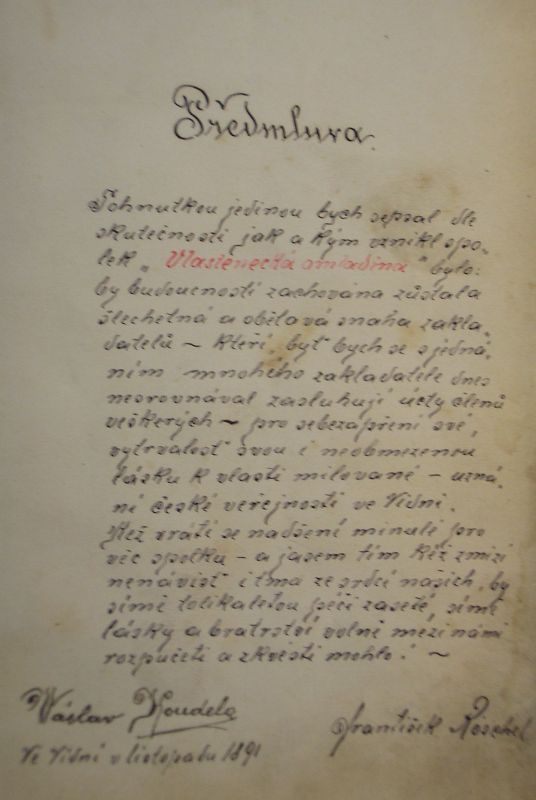 Předmluva.
Pohnutkou jedinou bych sepsal dle
skutečnosti jak a kým vznikl spo-
lek „Vlastenecká omladina" bylo:
by budoucnosti zachována zůstala
šlechetná a obětavá snaha zakla-
datelů ~ kteří, byť bych se s jedná-
ním mnohého zakladatele dnes
nesrovnával zasluhují úcty členů
veškerých ~ pro sebezapření své,
vytrvalosť svou i neobmezenou
lásku k vlasti milované – uzná-
ní české veřejnosti ve Vídni.
Kéž vrátí se nadšení minulé pro
věc spolku – a jasem tím kéž zmizí
nenávisť i tma ze srdcí našich, by
símě tolikaletou péčí zaseté, símě
lásky a bratrství volně mezi námi
rozpučeti a zkvésti mohlo! ~
Václav Koudela
František Röschel
Ve Vídni v listopadu 1891